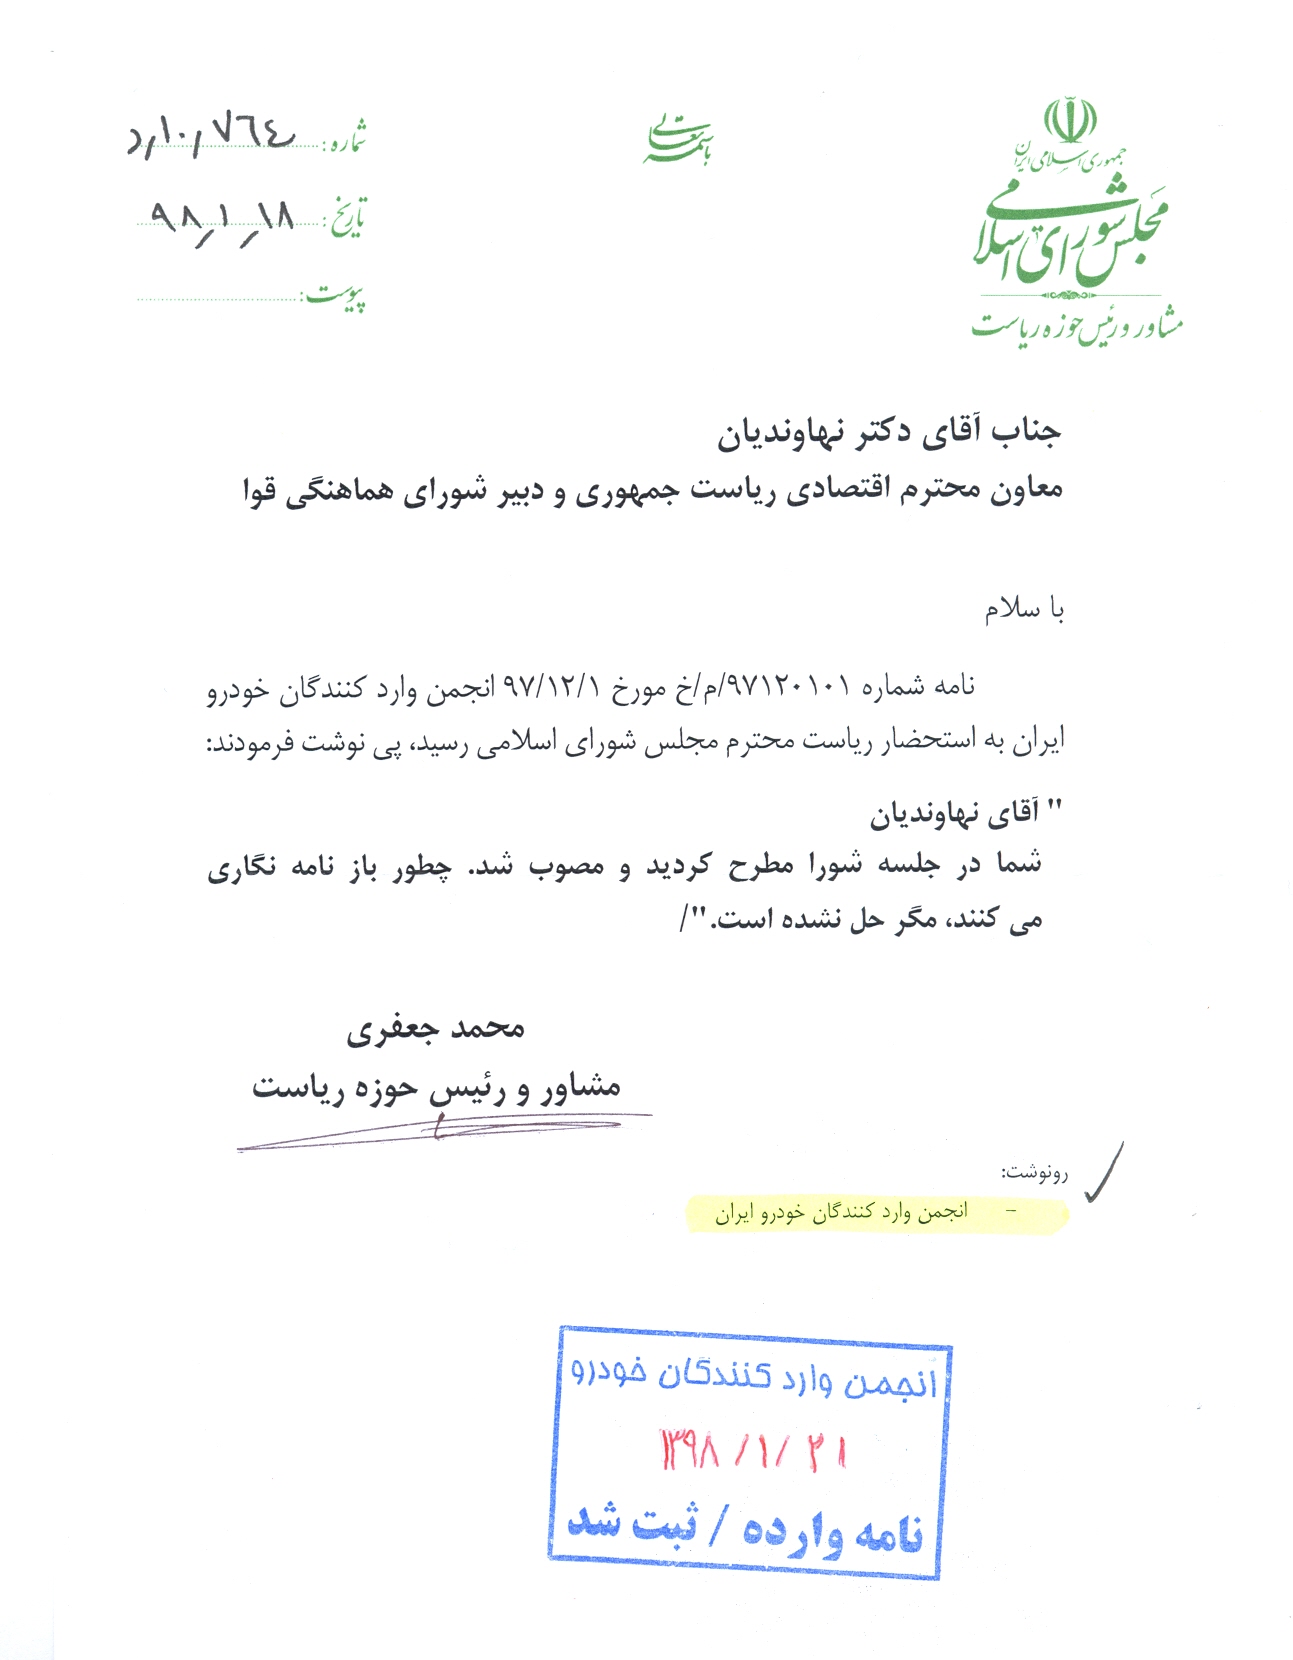 باسمه تعالی
جمهوری اسلامی ایران
مجلس شورای اسلامی
مشاور و رئیس حوزه ریاست
شماره: ۷۶۴/۱۰/د
تاریخ: ۹۸/۱/۱۸
پیوست:
جناب آقای دکتر نهاوندیان
معاون محترم اقتصادی ریاست جمهوری و دبیر شورای هماهنگی قوا
با سلام
نامه شماره ۹۷۱۲۰۱۰۱/م/خ مورخ ۹۷/۱۲/۱ انجمن وارد کنندگان خودرو
ایران به استحضار ریاست محترم مجلس شورای اسلامی رسید، پی نوشت فرمودند:
" آقای نهاوندیان
شما در جلسه شورا مطرح کردید و مصوب شد. چطور باز نامه نگاری
می کنند، مگر حل نشده است."/
محمد جعفری
مشاور و رئیس حوزه ریاست
رونوشت:
- انجمن وارد کنندگان خودرو ایران
انجمن وارد کنندگان خودرو
۱۳۹۸/۱/۲۱
نامه وارده / ثبت شد